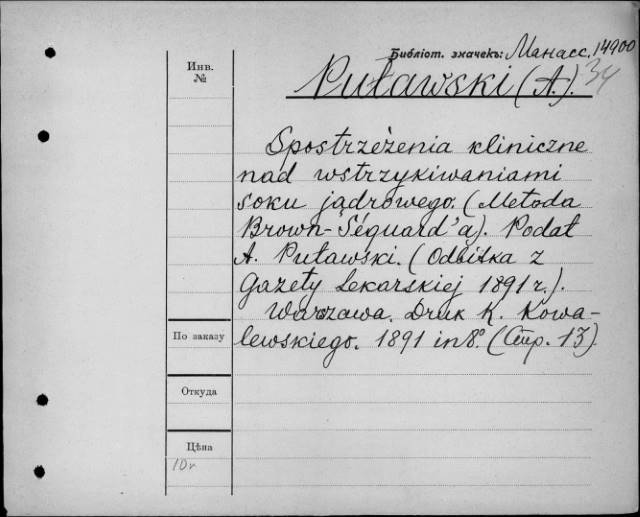 Библіот. значекъ: Манасс. 14900
34
Инв.
№
Puławski (A.).
Spostrzeżenia kliniczne
nad wstrzykiwaniami
soku jądrowego. (Metoda
Brown-Séquard'a). Podał
A. Puławski. (Odbitka z
Gazety Lekarskiej 1891 r.).
Warszawa. Druk K. Kowa-
lewskiego. 1891 in 8°. (Стр. 13).
По заказу
Откуда
Цѣна
10 r